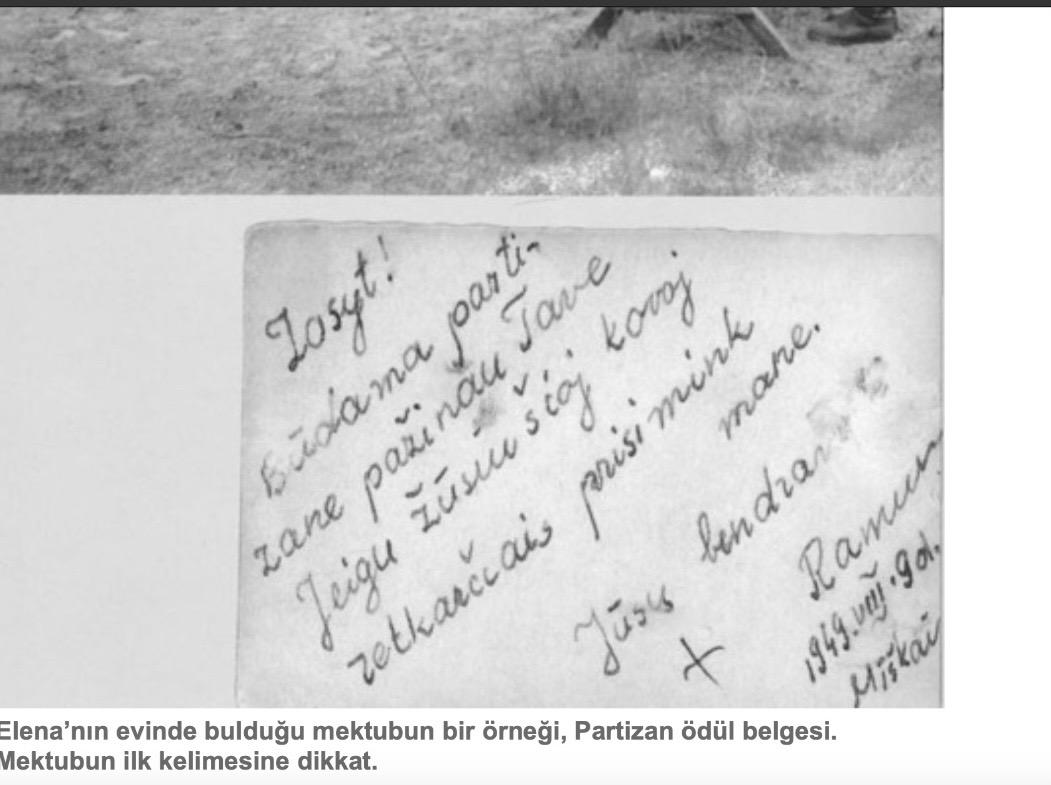 Zosyt!
Būdama parti-
zane pažinau Tave
Jeigu žūsiu šioj kovoj
retkarčiais prisimink
mane.
Jūsų
x
Ramun
1949.VIII.9d.
Miškai
Elena’nın evinde bulduğu mektubun bir örneği, Partizan ödül belgesi.
Mektubun ilk kelimesine dikkat.